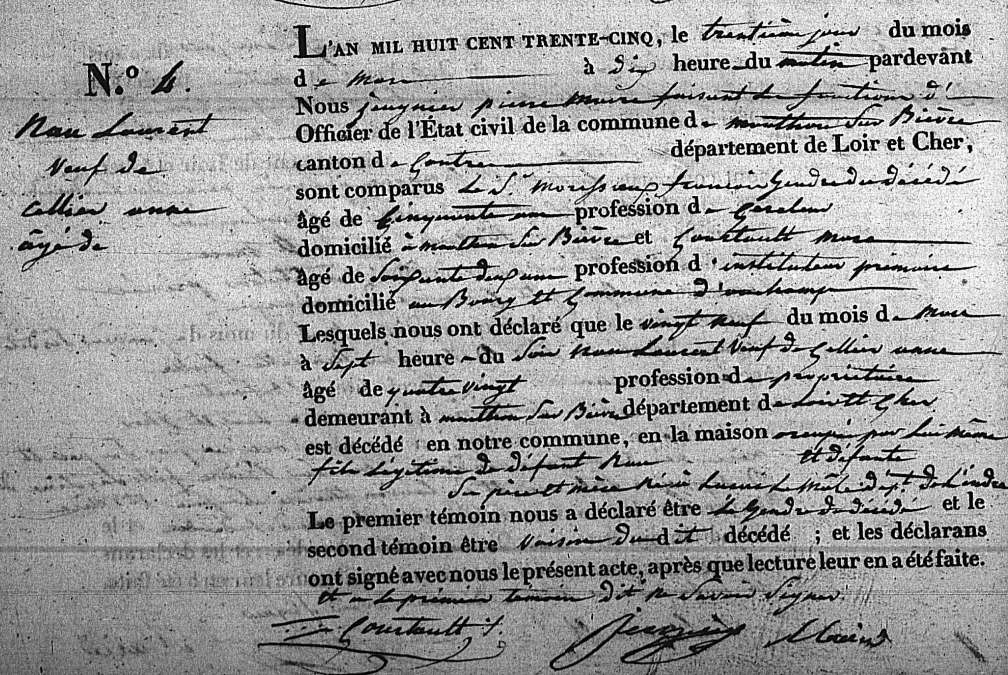 N.º 4.
Nau Laurent
Veuf de
Cellier anne
âgé de
L'AN MIL HUIT CENT TRENTE-CINQ, le trentième jour du mois
de Mars à dix heure du matin pardevant
Nous Jeugnier pierre Maire faisant les fonctions d'
Officier de l'État civil de la commune de monthou Sur Bièvre
canton de Contres département de Loir et Cher,
sont comparus Le Sr françois Gendre du décédé
âgé de Cinquante ans profession de
domicilié à monthou Sur Bièvre et Courtault Marc
âgé de Soixante deux ans profession d'instituteur primaire
domicilié au Bourg et Commune d'ouchamp
Lesquels nous ont déclaré que le vingt neuf du mois de Mars
à Sept heure du Soir Nau Laurent Veuf de Cellier anne
âgé de quatre vingt profession de propriétaire
demeurant à monthou Sur Bièvre département de Loir et Cher
est décédé en notre commune, en la maison occupée par lui même
fils légitime de défunt Nau et défunte
Ses père et mère dépt. de L'indre
Le premier témoin nous a déclaré être le Gendre du décédé et le
second témoin être Voisin du dit décédé ; et les déclarans
ont signé avec nous le présent acte, après que lecture leur en a été faite.
et le premier temoin dit ne Savoir Signer.
Courtault
Jeugnier Maire